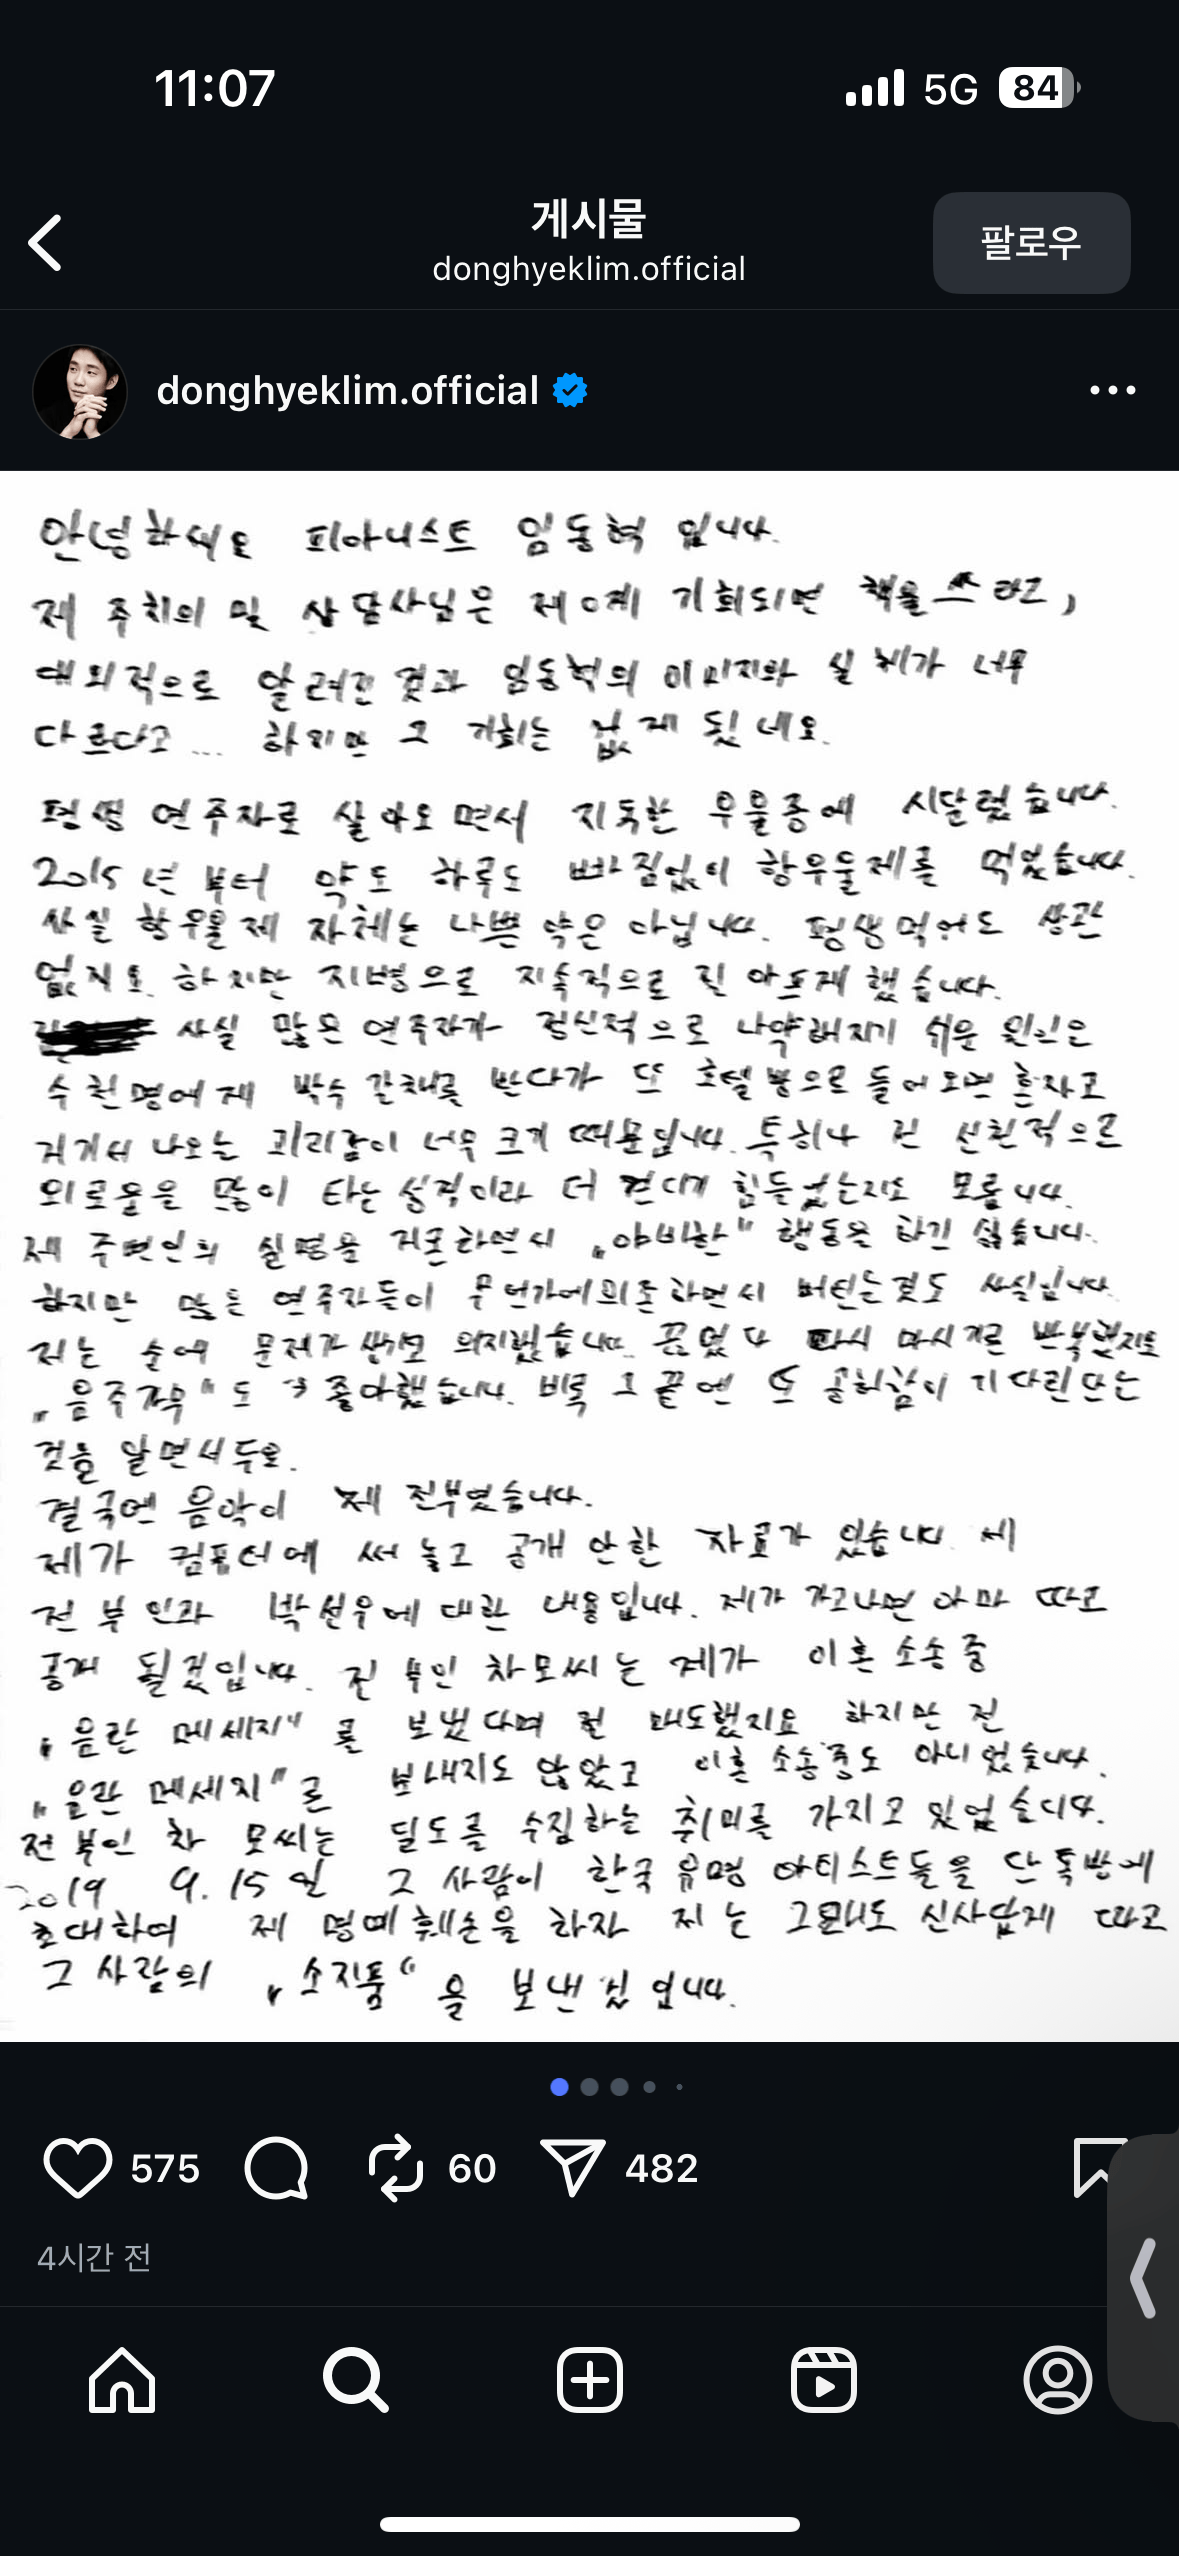 11:07
5G 84
게시물
donghyeklim.official
팔로우
donghyeklim.official
안녕하세요 피아니스트 임동혁 입니다.
제 주치의 및 상담사님은 제게 기회되면 책을 쓰라고,
대외적으로 알려진 것과 임동혁의 이미지와 실체가 너무
다르다고... 하지만 그 기회는 없게 됬네요.
평생 연주자로 살아오면서 지독한 우울증에 시달렸습니다.
2015년 부터 약도 하루도 빠짐없이 항우울제를 먹었습니다.
사실 항우울제 자체는 나쁜 약은 아닙니다. 평생 먹어도 상관
없지요. 하지만 지병으로 지속적으로 절 아프게 했습니다.
사실 많은 연주자가 정신적으로 나약해지기 쉬운 원인은
수천명에게 박수 갈채를 받다가 또 호텔방으로 들어오면 혼자고
거기서 나오는 괴리감이 너무 크기 때문입니다. 특히나 전 선천적으로
외로움을 많이 타는 성격이라 더 견디기 힘들었는지도 모릅니다.
제 주변인의 실명을 거론하면서 „야비한" 행동은 하긴 싫습니다.
하지만 많은 연주자들이 무언가에 의존하면서 버틴는것도 사실입니다.
저는 술에 문제가 생기도 의지했습니다. 끊었다 다시 마시기를 반복했지요
„음주가무"도 좋아했습니다. 비록 그 끝엔 또 공허함이 기다린단는
것을 알면서두요.
결국엔 음악이 제 전부였습니다.
제가 컴퓨터에 써 놓고 공개 안한 자료가 있습니다. 제
전 부인과 박선우에 대한 내용입니다. 제가 가고나면 아마 따로
공개 될것입니다. 전 부인 차모씨는 제가 이혼 소송 중
„음란 메세지"를 보냈다며 절 매도했지요 하지만 전
„음란 메세지"를 보내지도 않았고 이혼 소송중도 아니었습니다.
전 부인 차 모씨는 딜도를 수집하는 취미를 가지고 있었습니다.
2019 9. 15일 그 사람이 한국 유명 아티스트들을 단톡방에
초대하여 제 명예훼손을 하자 저는 그래도 신사답게 따로
그 사람의 „소지품"을 보낸것 입니다.
575 60 482
4시간 전